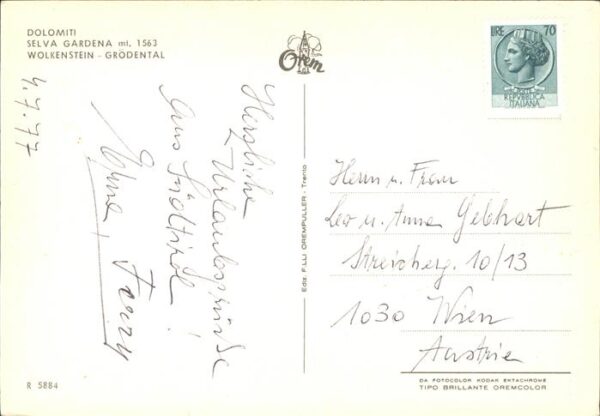 DOLOMITI
SELVA GARDENA mt. 1563
WOLKENSTEIN - GRÖDENTAL
4.7.77
Herzliche
Urlaubsgrüße
aus Südtirol!
Erna, Ferry
Orem
Ediz. F.LLI OREMPULLER - Trento
LIRE 70
POSTE
REPVBBLICA
ITALIANA
Herrn u. Frau
Leo u. Anna Gebhart
10/13
1030 Wien
Austria
R 5884
DA FOTOCOLOR KODAK EKTACHROME
TIPO BRILLANTE OREMCOLOR